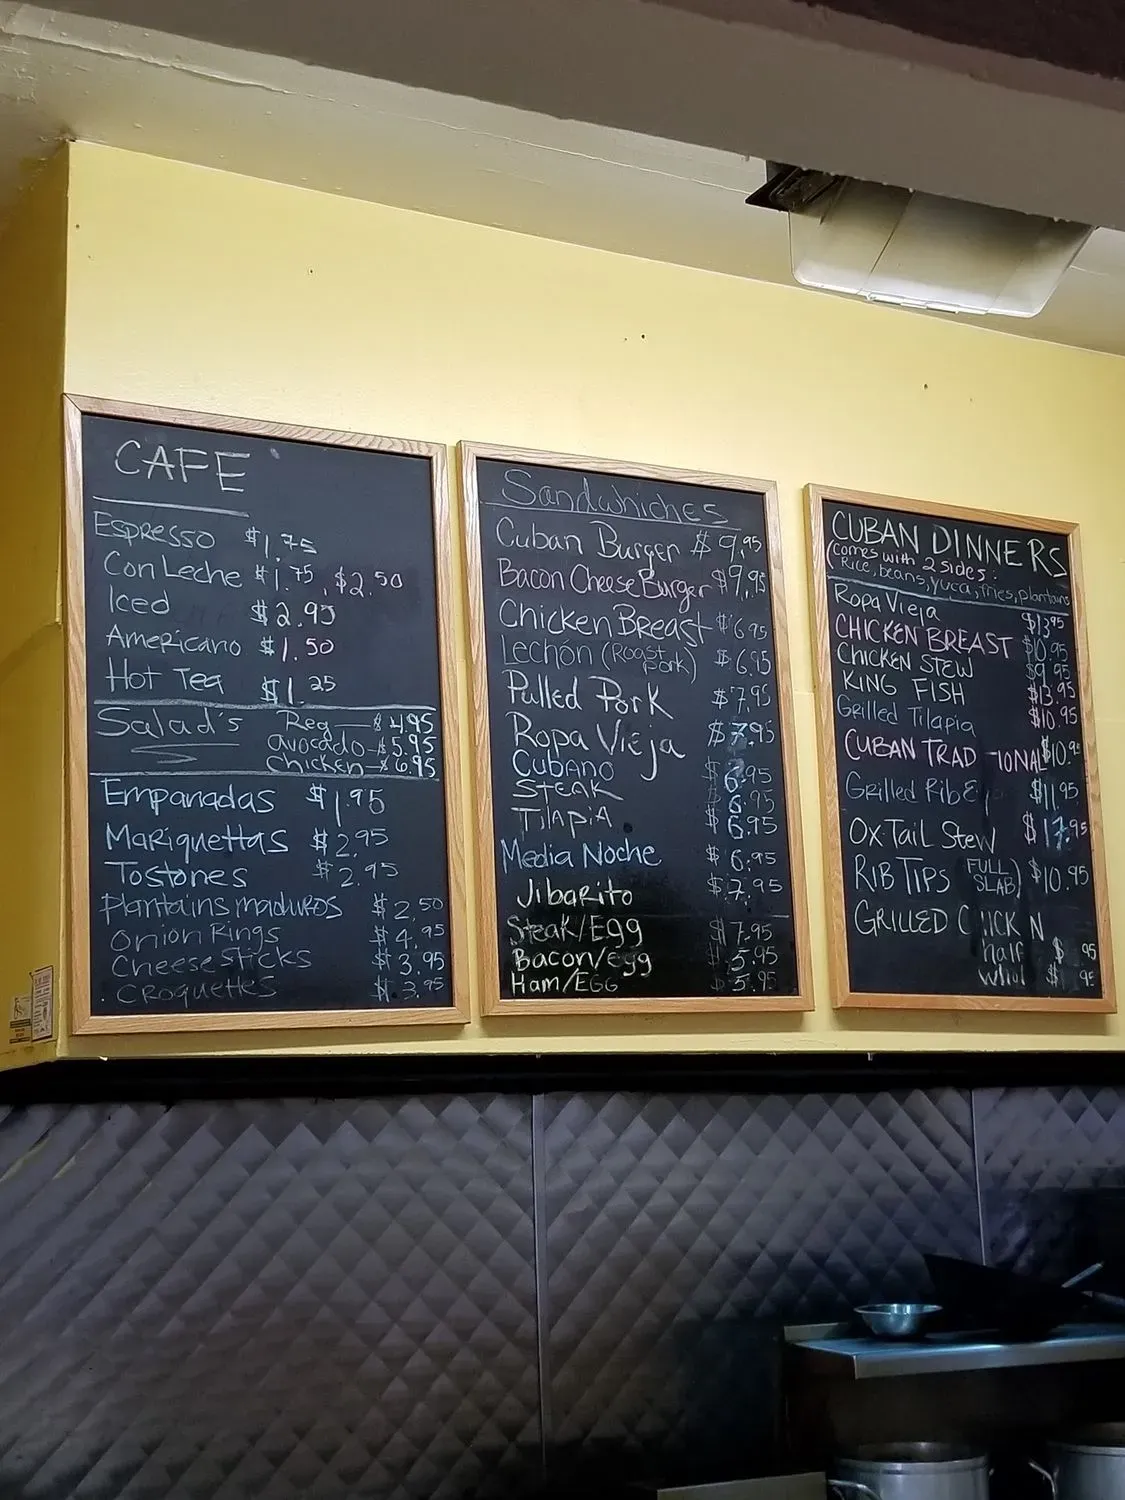 CAFE
Espresso $1.75
Con Leche $1.75, $2.50
Iced $2.95
Americano $1.50
Hot Tea $1.25
Salad's Reg — $4.95
avocado - $5.95
Chicken - $6.95
Empanadas $1.95
Mariquettas $2.95
Tostones $2.95
Plantains maduros $2.50
Onion Rings $4.95
Cheese Sticks $3.95
Croquettes $3.95
Sandwhiches
Cuban Burger $9.95
Bacon Cheese Burger $9.95
Chicken Breast $6.95
Lechón (Roast Pork) $6.95
Pulled Pork $7.95
Ropa Vieja $7.95
Cubano $6.95
Steak $6.95
Tilapia $6.95
Media Noche $6.95
Jibarito $7.95
Steak/Egg $7.95
Bacon/egg $5.95
Ham/Egg $5.95
CUBAN DINNERS
(comes with 2 sides:
Rice, beans, yuca, fries, plantains
Ropa Vieja $13.95
CHICKEN BREAST $10.95
CHICKEN STEW $9.95
KING FISH $13.95
Grilled Tilapia $10.95
CUBAN TRAD IONAL $10.9
Grilled Rib E $11.95
Ox Tail Stew $17.95
RIB TIPS FULL SLAB) $10.95
GRILLED C ICK N
half $ 95
whol $ 95